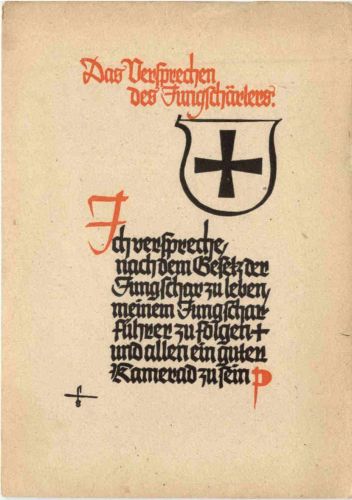 Das Versprechen
des Jungschärlers:
Ich verspreche,
nach dem Gesetz der
Jungschar zu leben,
meinem Jungschar-
führer zu folgen +
und allen ein guter
Kamerad zu sein